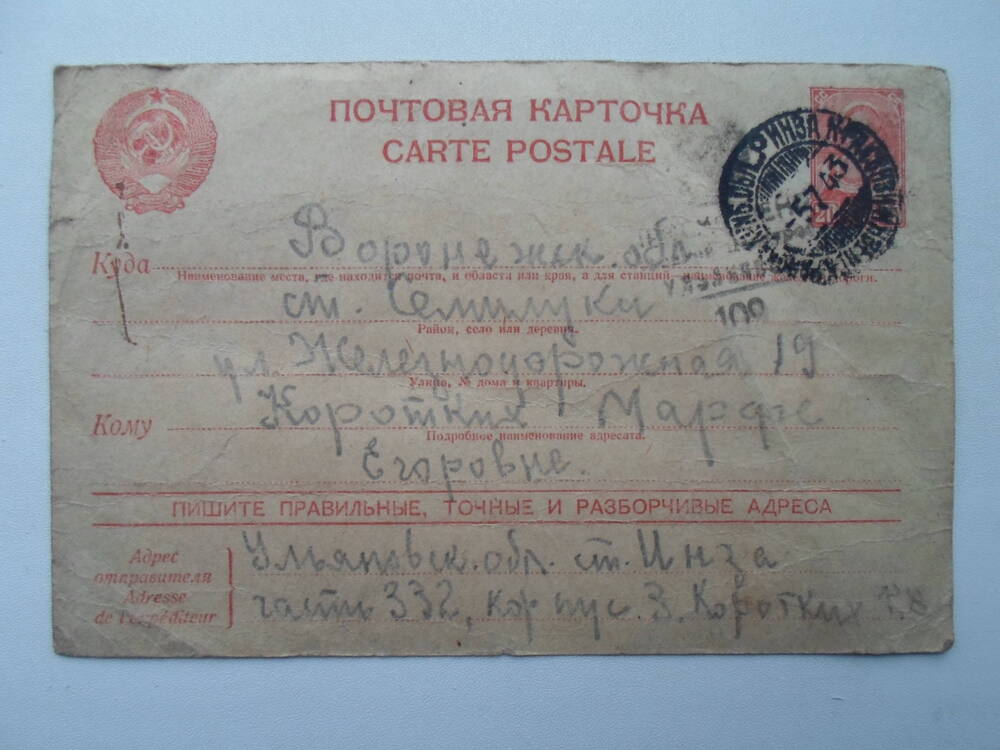 ПОЧТОВАЯ КАРТОЧКА
CARTE POSTALE
ИНЗА
5 7 43
Куда Воронежск. обл.
Наименование места, где находится почта, и области или края, а для станций, наименование
ст. Семилуки
Район, село или деревня.
109
ул. Железнодорожная 19
Улица, № дома и квартиры.
Кому Коротких Марфе
Подробное наименование адресата.
Егоровне.
ПИШИТЕ ПРАВИЛЬНЫЕ, ТОЧНЫЕ И РАЗБОРЧИВЫЕ АДРЕСА
Адрес отправителя
Adresse de l'expéditeur
Ульяновск. обл. ст. Инза
часть 332, корпус 3. Коротких